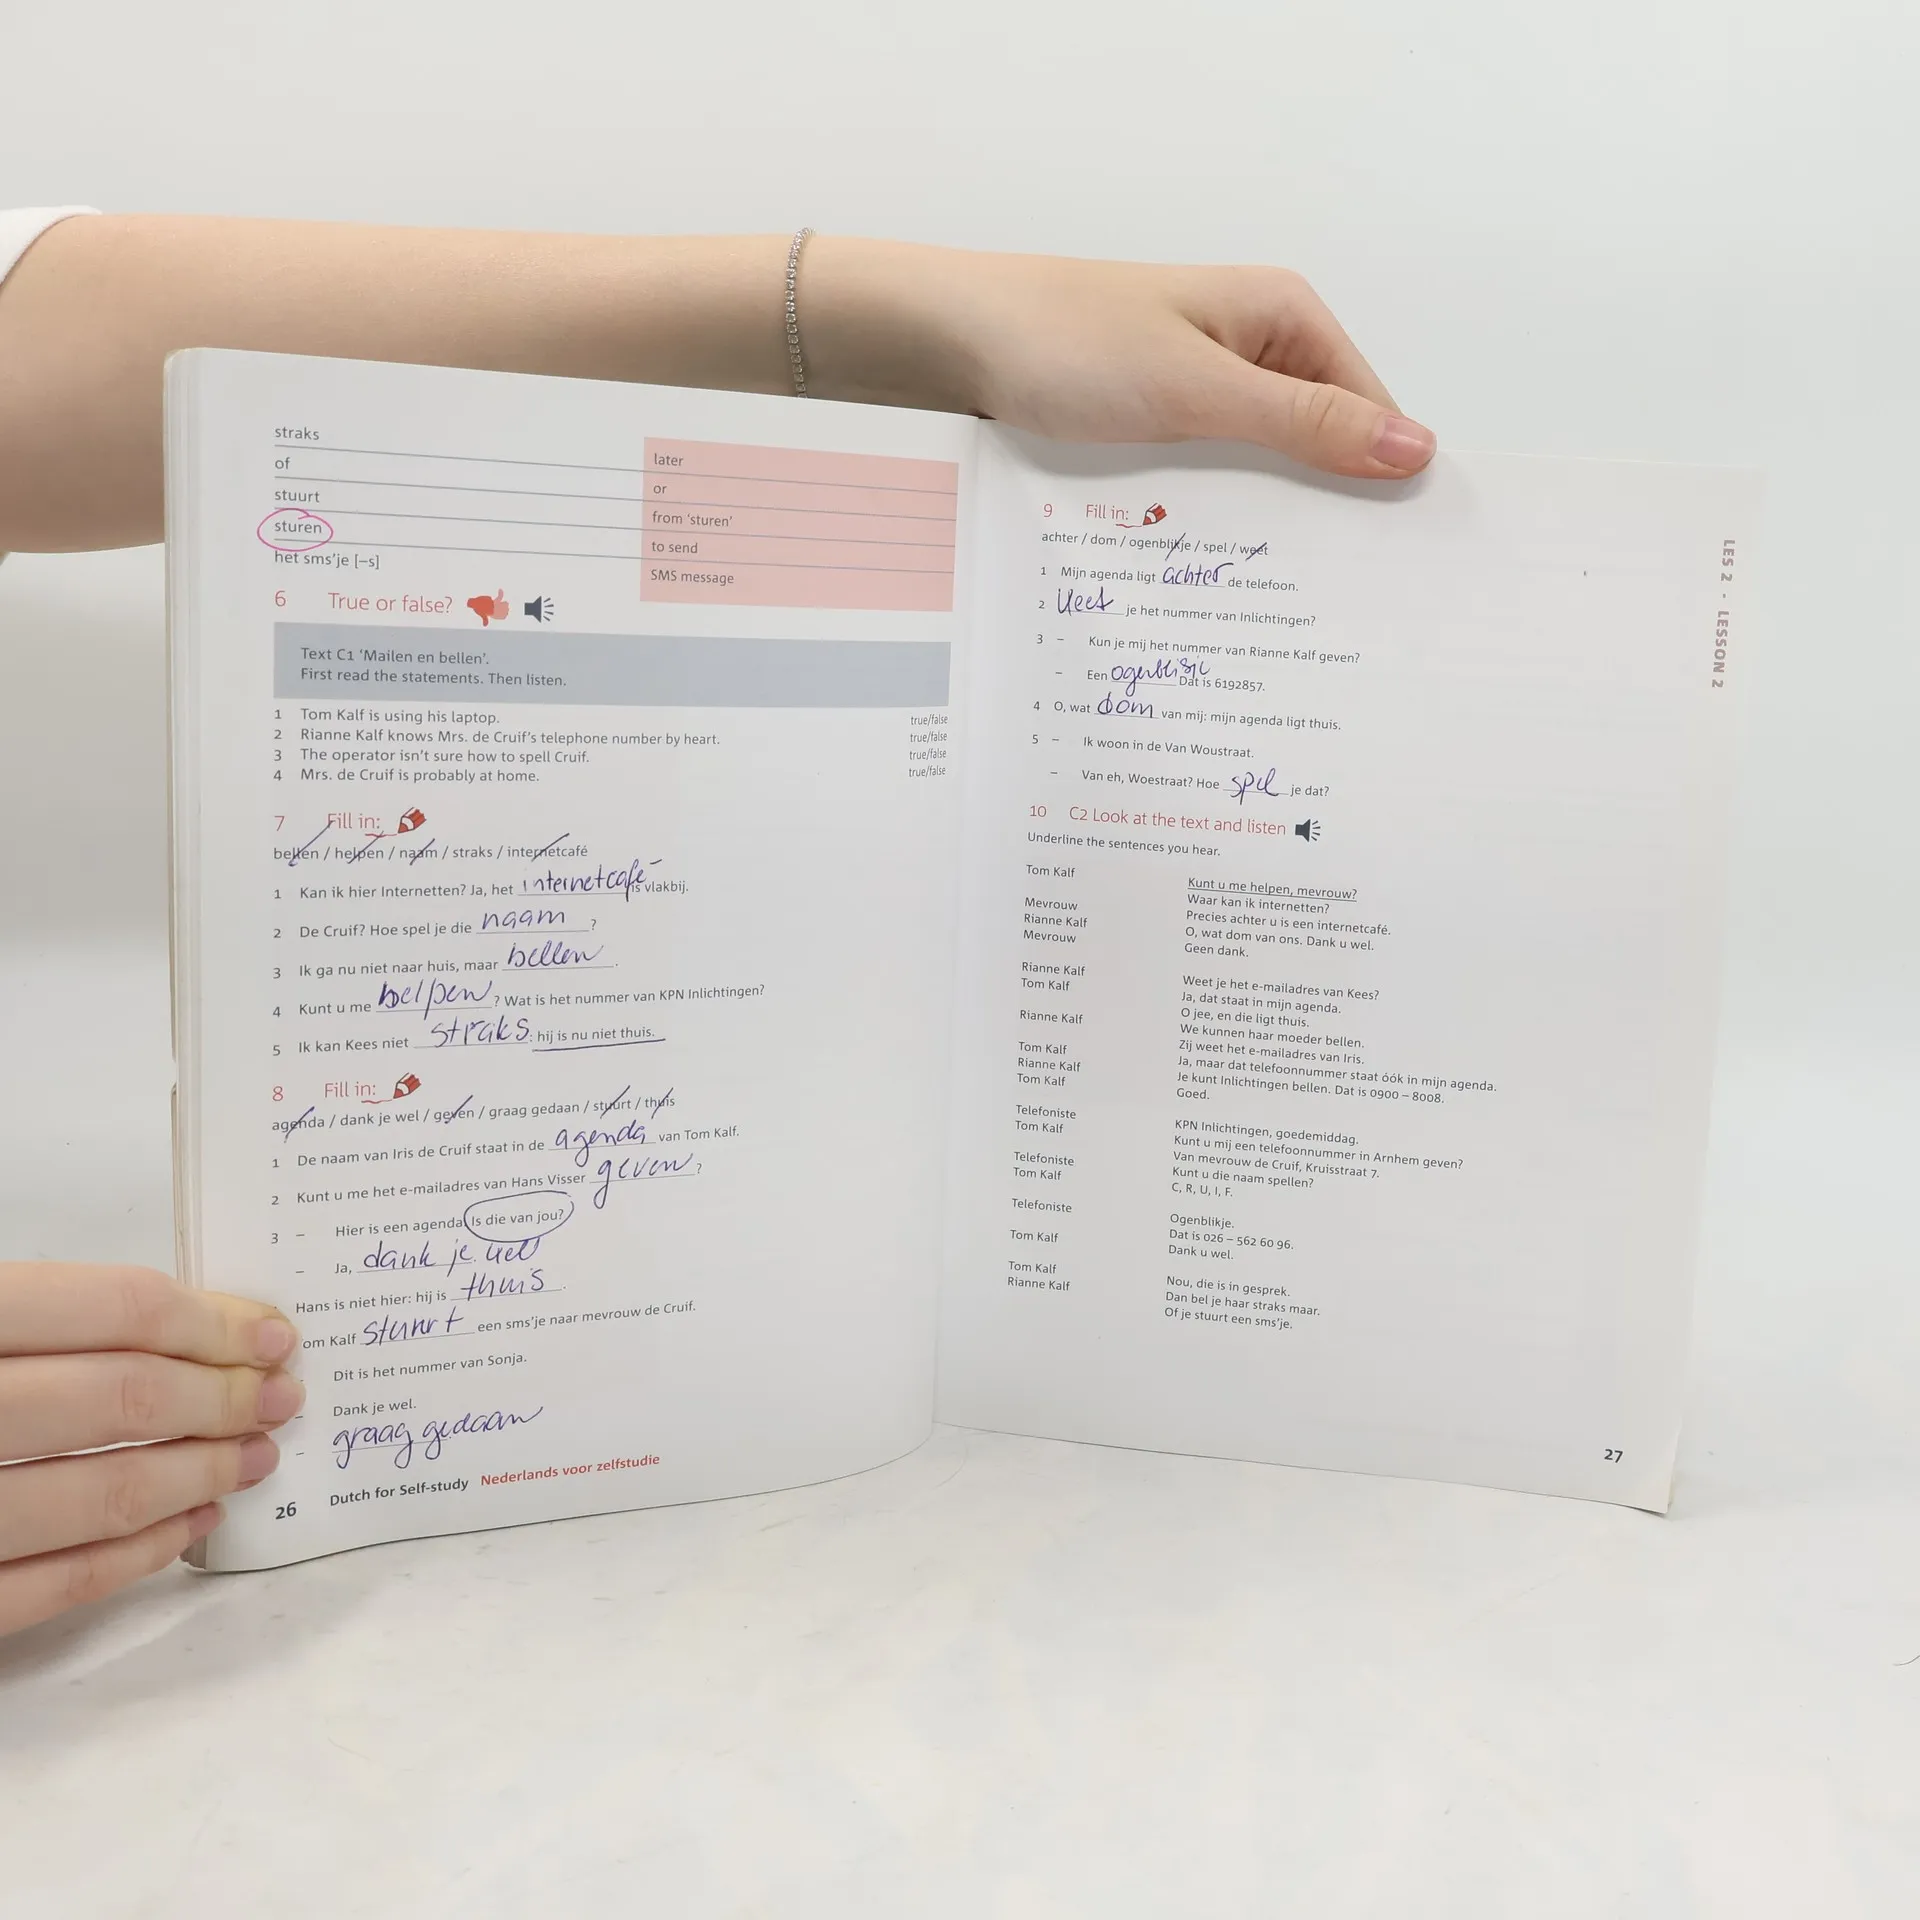 straks
later
of
or
stuurt
from 'sturen'
sturen
to send
het sms'je [–s]
SMS message
6 True or false?
Text C1 'Mailen en bellen'.
First read the statements. Then listen.
1 Tom Kalf is using his laptop. true/false
2 Rianne Kalf knows Mrs. de Cruif's telephone number by heart. true/false
3 The operator isn't sure how to spell Cruif. true/false
4 Mrs. de Cruif is probably at home. true/false
7 Fill in:
bellen / helpen / naam / straks / internetcafé
1 Kan ik hier Internetten? Ja, het internetcafé is vlakbij.
2 De Cruif? Hoe spel je die naam ?
3 Ik ga nu niet naar huis, maar bellen .
4 Kunt u me helpen ? Wat is het nummer van KPN Inlichtingen?
5 Ik kan Kees niet straks : hij is nu niet thuis.
8 Fill in:
agenda / dank je wel / geven / graag gedaan / stuurt / thuis
1 De naam van Iris de Cruif staat in de agenda van Tom Kalf.
2 Kunt u me het e-mailadres van Hans Visser geven ?
3 – Hier is een agenda. Is die van jou?
– Ja, dank je wel
Hans is niet hier: hij is thuis .
om Kalf stuurt een sms'je naar mevrouw de Cruif.
Dit is het nummer van Sonja.
– Dank je wel.
– graag gedaan
26 Dutch for Self-study Nederlands voor zelfstudie
9 Fill in:
achter / dom / ogenblikje / spel / weet
1 Mijn agenda ligt achter de telefoon.
2 Weet je het nummer van Inlichtingen?
3 – Kun je mij het nummer van Rianne Kalf geven?
– Een Dat is 6192857.
4 O, wat dom van mij: mijn agenda ligt thuis.
5 – Ik woon in de Van Woustraat.
– Van eh, Woestraat? Hoe spel je dat?
10 C2 Look at the text and listen
Underline the sentences you hear.
Tom Kalf Kunt u me helpen, mevrouw?
Waar kan ik internetten?
Mevrouw Precies achter u is een internetcafé.
Rianne Kalf O, wat dom van ons. Dank u wel.
Mevrouw Geen dank.
Rianne Kalf Weet je het e-mailadres van Kees?
Tom Kalf Ja, dat staat in mijn agenda.
O jee, en die ligt thuis.
Rianne Kalf We kunnen haar moeder bellen.
Zij weet het e-mailadres van Iris.
Tom Kalf Ja, maar dat telefoonnummer staat óók in mijn agenda.
Rianne Kalf Je kunt Inlichtingen bellen. Dat is 0900 – 8008.
Tom Kalf Goed.
Telefoniste KPN Inlichtingen, goedemiddag.
Tom Kalf Kunt u mij een telefoonnummer in Arnhem geven?
Van mevrouw de Cruif, Kruisstraat 7.
Telefoniste Kunt u die naam spellen?
Tom Kalf C, R, U, I, F.
Telefoniste Ogenblikje.
Dat is 026 – 562 60 96.
Tom Kalf Dank u wel.
Tom Kalf Nou, die is in gesprek.
Rianne Kalf Dan bel je haar straks maar.
Of je stuurt een sms'je.
27
LES 2 - LESSON 2